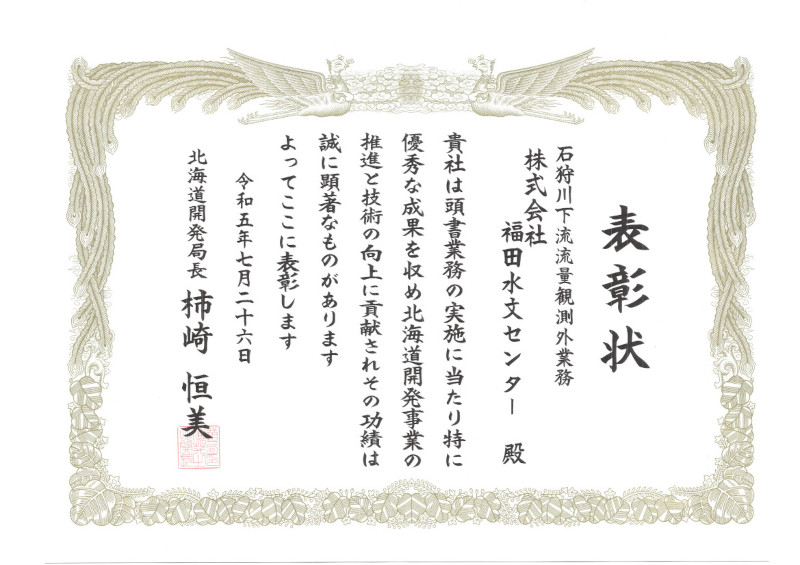 表彰状
石狩川下流流量観測外業務
株式会社
福田水文センター 殿
貴社は頭書業務の実施に当たり特に
優秀な成果を収め北海道開発事業の
推進と技術の向上に貢献されその功績は
誠に顕著なものがあります
よってここに表彰します
令和五年七月二十六日
北海道開発局長 柿崎 恒美